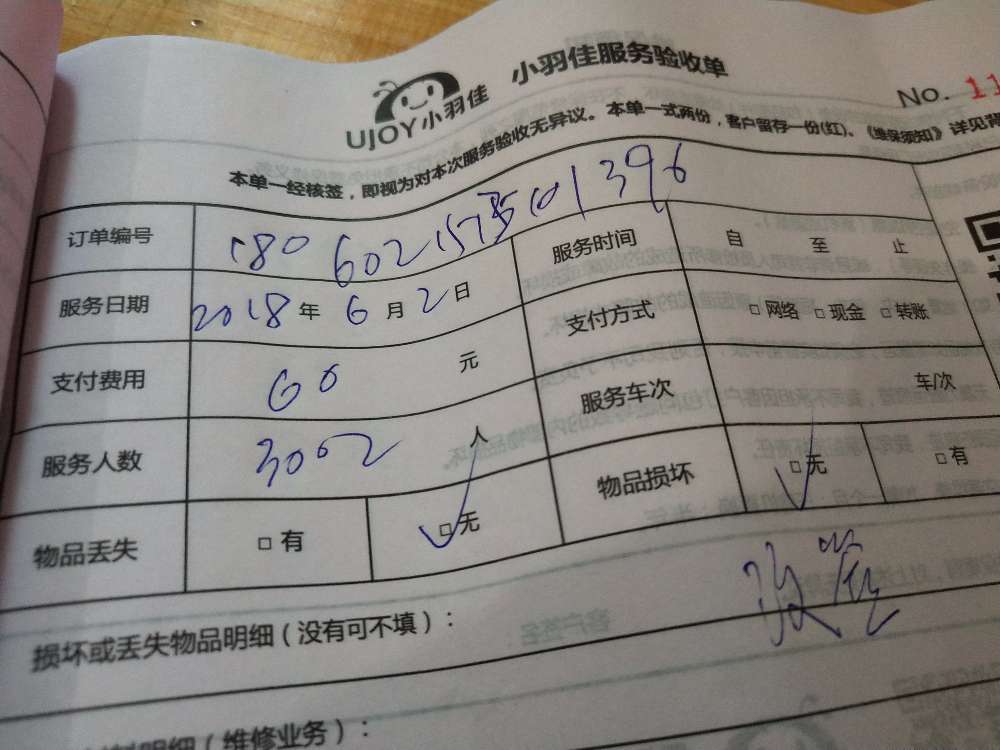 UJOY小羽佳 小羽佳服务验收单
No. 11
本单一经核签，即视为对本次服务验收无异议。本单一式两份，客户留存一份(红)、《维保须知》详见背
订单编号 服务时间 自 至 止
服务日期 2018年 6月 2日 支付方式 □网络 □现金 □转账
支付费用 60 元 服务车次 车/次
服务人数 3002 人 物品损坏 □无 □有
物品丢失 □有 □无
损坏或丢失物品明细（没有可不填）：
明细（维修业务）：